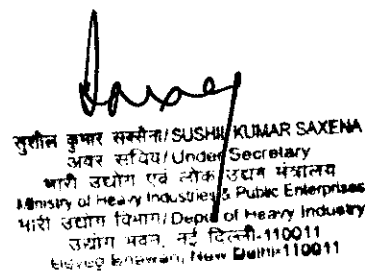 सुशील कुमार सक्सैना/SUSHIL KUMAR SAXENA
अवर सचिव/Under Secretary
भारी उद्योग एवं लोक उद्यम मंत्रालय
Ministry of Heavy Industries & Public Enterprises
भारी उद्योग विभाग/Deptt of Heavy Industry
उद्योग भवन, नई दिल्ली-110011
Udyog Bhawan, New Delhi-110011